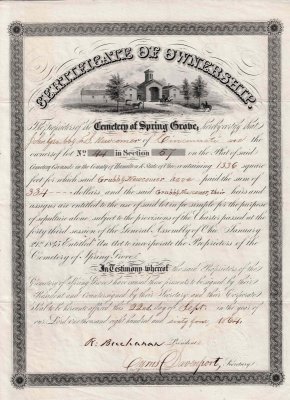 CERTIFICATE OF OWNERSHIP.
The Proprietors of the Cemetery of Spring Grove, hereby certify that
of Cincinnati are the
owners of lot No. 44 in Section 51 on the Plat of said
Cemetery Grounds in the County of Hamilton & State of Ohio containing 1336 square
feet for which said Grubb & Newcomer have paid the sum of
334 dollars and the said Grubb & Newcomer, their heirs and
assigns are entitled to the use of said lot in fee simple for the purpose
of sepulture alone subject to the provisions of the Charter passed at the
forty third session of the General Assembly of Ohio January
21st 1845 Entitled "An Act to incorporate the Proprietors of the
Cemetery of Spring Grove.
In Testimony whereof the said Proprietors of the
Cemetery of Spring Grove have caused these presents to be signed by their
President and countersigned by their Secretary and their Corporate
Seal to be hereunto affixed this 22nd day of Sept. in the year of
our Lord one thousand eight hundred and sixty four 1864.
R. Buchanan President
Cyrus Davenport, Secretary